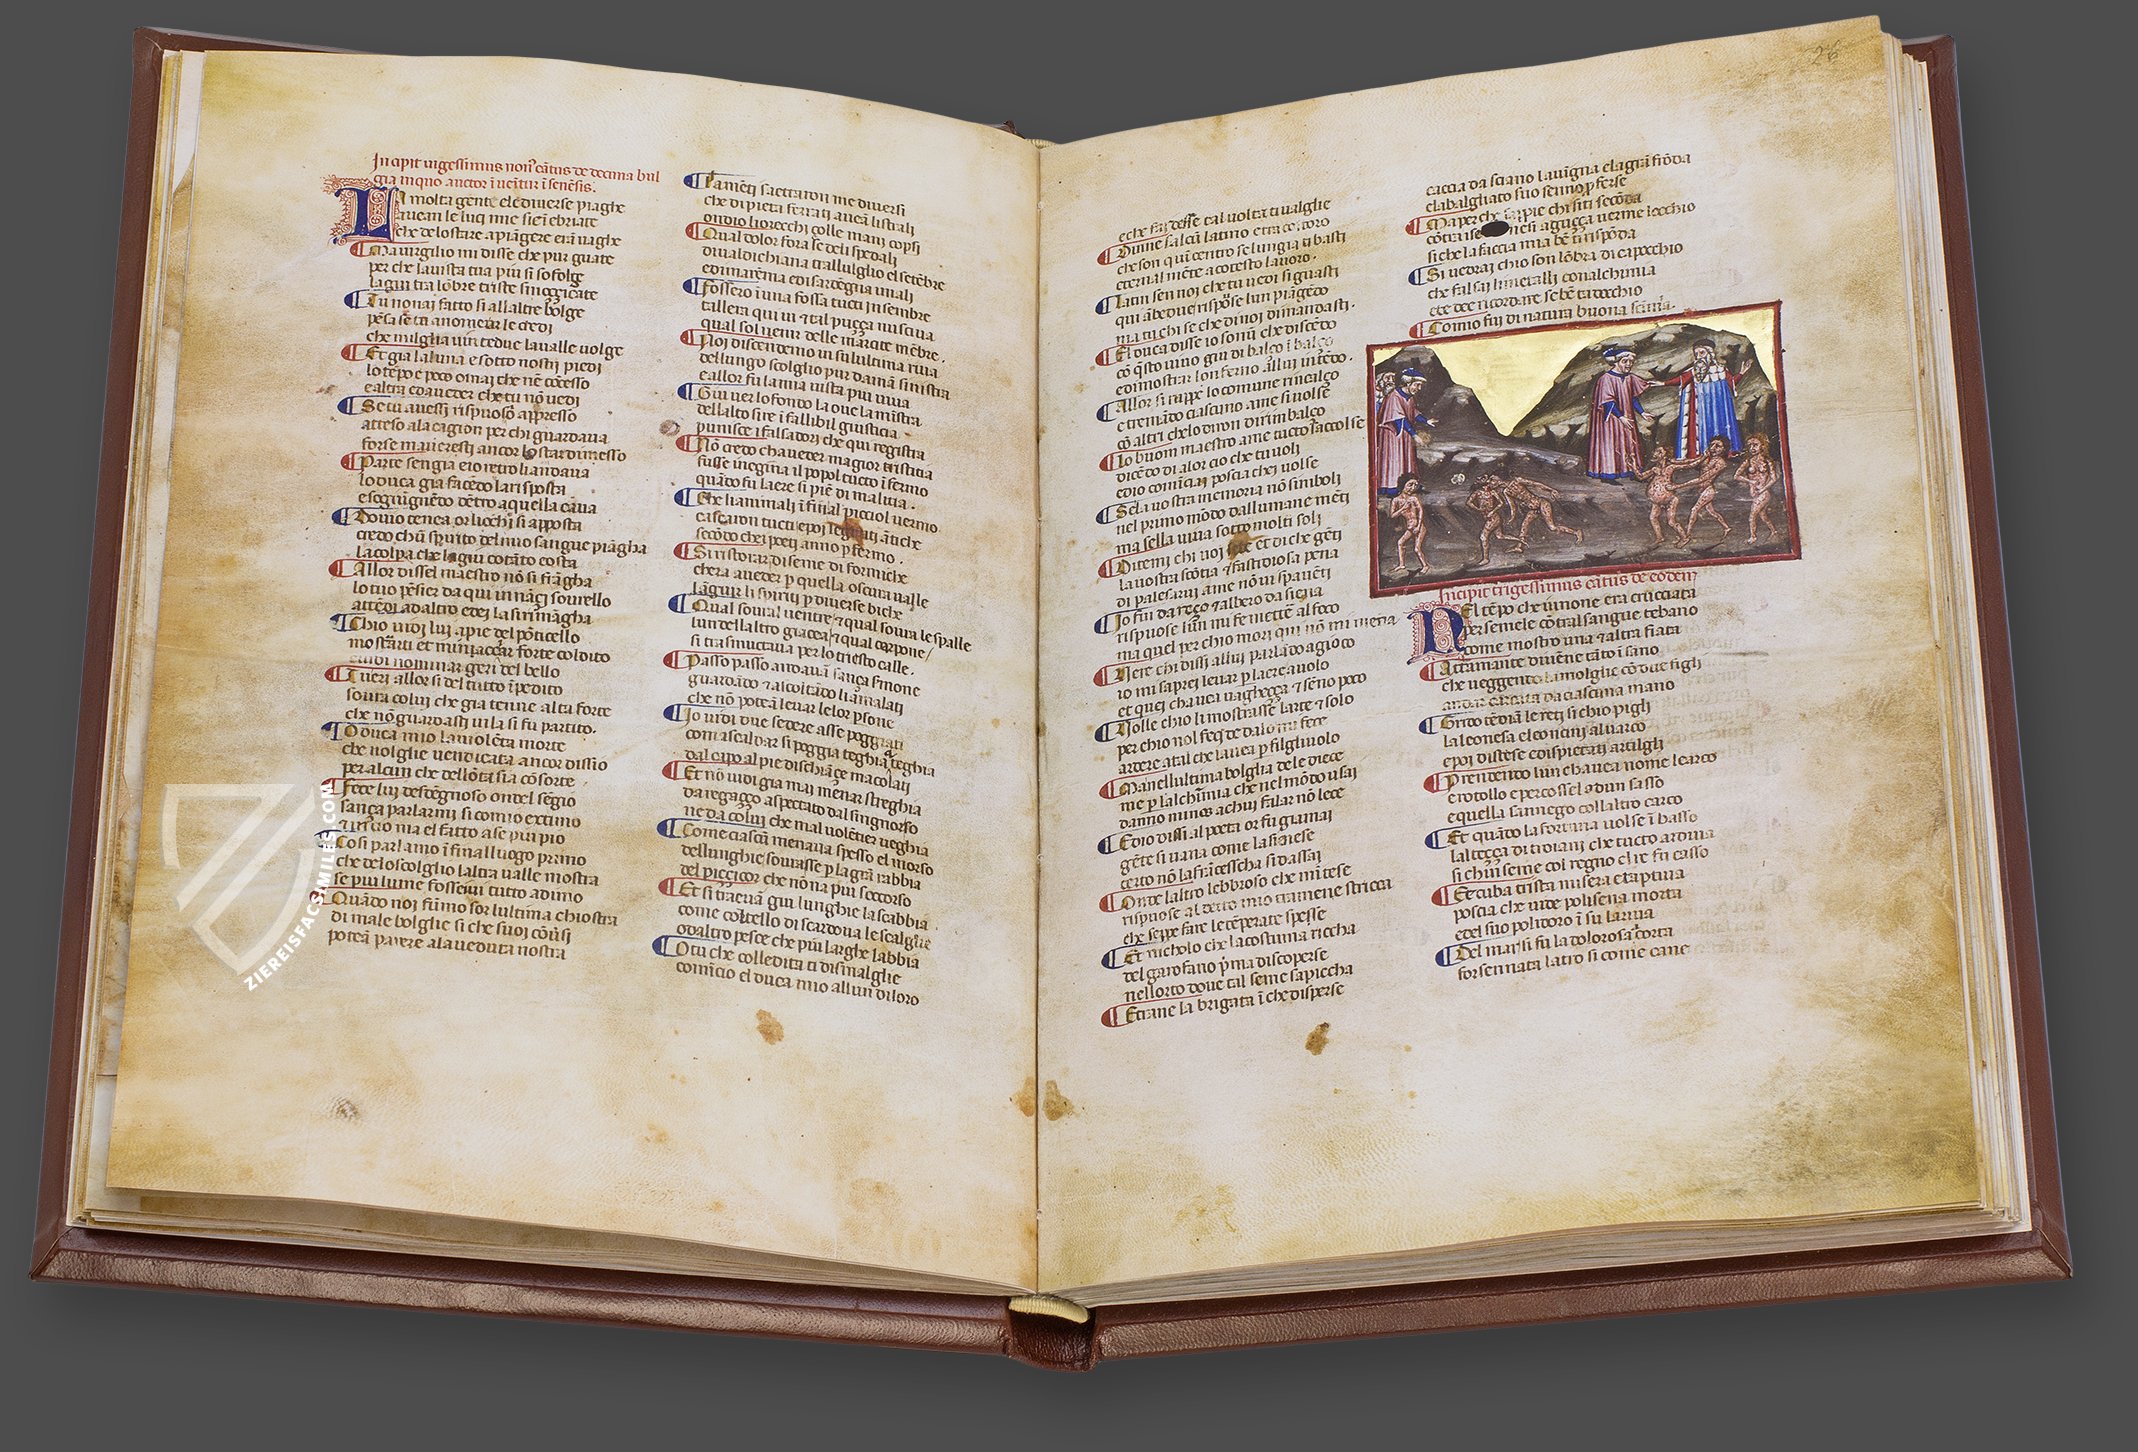 Incipit uigessimus non' cātus de decima bul
gia in quo auctor īuenitur ī senēsis.
La molta gente ele diuerse piaghe
aueam le luci mie sieñ ebriate
che delostare apiāgere erā uaghe
Ma uirgilio mi disse che pur guate
per che lauista tua pur si sofolge
lagiu tra lōbre triste smozzicate
Tu nonai fatto si allaltre bolge
pēsa se tu anomerar le credi
che miglia uintedue laualle uolge
Et gia laluna e sotto nostri piedi
lo tēpo e poco omai che nē cōcesso
ealtro e da ueder che tu nō uedi
Se tu auessi rispuosō appresso
atteso ala cagion per chi guardaua
forse mauresti ancor lo star dimesso
Parte sengia eio retro liandaua
lo duca gia facēdo la risposta
e sogiugnēdo dētro aquella caua
Douio tenea or liocchi si apposta
credo chū spirito del mio sangue piāgha
la colpa che lagiu cotāto costa
Allor dissel maestro nō si frāgha
lo tuo pēsier da qui innāçi sourello
attēdi ad altro et ei la sirimāgha
Chio uidi lui apie del pōticello
mostrarti et minacciar forte col dito
et udi nominar geri del bello
Tu eri allor si del tutto īpedito
soura colui che gia tenne alta forte
che nō guardasti in la si fu partito.
O duca mio la uiolēta morte
che nolglie uendicata ancor dissio
per alcun che dellōta sia cōsorte
Fece lui desdegnoso ondel sēgio
sança parlarmi si como extimo
et īncio ma el fatto a se piu pio
Cosi parlamo īfin alluogo primo
che deloscolglio laltra ualle mostra
se piu lume fosseiui tutto adimo
Quādo noi fūmo sor lultima chiostra
di male bolglie si che suoi cōuersi
poteā parere ala ueduta nostra
Lamēti saettaron me diuersi
che di pieta ferrati aueā li strali
ondio liorecchi colle mani copsi
Qual dolor fora se deli spedali
diualdichiana tralluglio el setēbre
et di marēma et di sardegna imali
Fossero ī una fossa tucti insembre
tallera qui ui et tal puçça nusciua
qual sol uenir delle marcite mēbre.
Noi discendemo in su lultima riua
dellungo scolglio pur da man sinistra
e allor fu la mia uista piu uiua
Giu uer lo fondo la oue la mīstra
dellalto sire īfallibil giusticia
punisce ifalsadori che qui registra
Nō credo cha ueder magior tristitia
fusse inegina il popol tucto īfermo
quādo fu laere si piē di malitia.
Che lianimali īfin al picciol uermo
cascaron tucti et poi le gēti ātiche
secōdo chei poeti anno p fermo.
Si ristorar di seme di formiche
chera aueder p quella oscura ualle
lāguir li spiriti p diuerse biche
Qual soural uentre et qual soura le spalle
lun dellaltro giacea et qual carpone
si trasmutaua per lo triesto calle.
Passo passo andauā sança sermone
guardādo et ascoltādo liāmalati
che nō poteā leuar le lor psone
Io uidi due sedere asse poggiati
com ascaldar si poggia teghia a teghia
dal capo al pie dischiāçe macolati
Et nō uidi gia mai menar streghia
da regaçço aspectato dal singnorso
ne da colui che mal uolētier ueghia
Come ciascū menaua spesso el morso
dellunghie sourasse p la grā rabbia
del piççicor che nō na piu soccorso
Et si traeuā giu lunghie la scabbia
come coltello di scardoua le scalglie
o daltro pesce che piu larghe labbia
O tu che colledita ti dismalglie
comicio el duca mio allun diloro
e che fai desse tal uolta tenalglie
Dinne salcū latino e tra costoro
che son qui centro se lungia ti basti
eternal mēte a cotesto lauoro.
Latin sen noi che tu uedi si guasti
qui ābe due rispōse lun piāgēdo
ma tu chi se che di noi dimandasti.
El duca disse io sonū che discēdo
cō q̄sto uiuo giu di balço ī balço
et di mostrar lonferno allui intēdo.
Allor si ruppe lo comune rincalço
e tremādo ciascuno ame si uolse
cō altri che ludiron dirimbalço
Lo buom maestro ame tucto saccolse
dicēdo di alor cio che tu uoli
ed io comīciai poscia chei uolse
Se la uostra memoria nō simboli
nel primo mōdo dallumane mēti
ma sella uiua sotto molti soli
Ditemi chi uoi sete et di che gēti
la uostra scōtia et fastidiosa pena
di palesarui ame nō ui spauēti
Io fui dareço et albero da siena
rispuose lūn mi fe mettē al foco
ma quel per chio mori qui nō mi mena
Uero e chi dissi allui parlādo agioco
io mi saprei leuar p laere auolo
et quei chauea uagheçça et sēno poco
Uolle chio li mostrasse larte et solo
per chio nol feci dedalo mi fece
ardere atal che lauea p filgliuolo
Ma nellultima bolgia dele diece
me p lalchimia che nel mōdo usai
danno minos achui fallar nō lece
Ed io dissi al poeta or fu giamai
gēte si uana come la sanese
certo nō la frācesscha si dassai
Onde laltro lebbroso che mītese
rispuose al detto mio tramene stricca
che seppe fare le tēperate spesse
Et nicholo che la costuma riccha
del garofano p̄ma discoperse
nellorto doue tal seme sapiccha
Et rane la brigata ī che disperse
caccia da sciano la uīgna elagrā frōda
elabalgliato suo senno p ferse
Ma per che sappie chi siti secōda
cōtra i se nesi aguçça uerme locchio
si che la faccia mia bē ti rispōda
Si uedrai chio son lōbra di capocchio
che falsai limetalli conalchimia
ete dee ricordare se bē tadocchio
Comio fui di natura buona scimia.
Incipit trigessimus cātus de eodem
Nel tēpo che iunone era crucciata
per semele cōtral sangue tebano
come mostro una et altra fiata
Attamante diuēne tāto ī sano
che ueggendo la molglie cō due figli
andar carcata da ciascuna mano
Grido tēdiā le reti si chio pigli
la leonesa eleoncini aluarco
epoi distese edispietati artilgli
Prendendo lun chauea nome learco
e rotollo e percossel ad un sasso
e quella sannego collaltro carco
Et quādo la fortuna uolse ī basso
lalteçça di troiani che tucto ardiua
si chin seme col regno el re fu casso
Et cuba trista misera et aptiua
poscia che uide polisena morta
et del suo polidoro ī su la riua
Del mar si fu la dolorosa corta
forsennata latro si come cane
26
ZIEREISFACSIMILES.COM